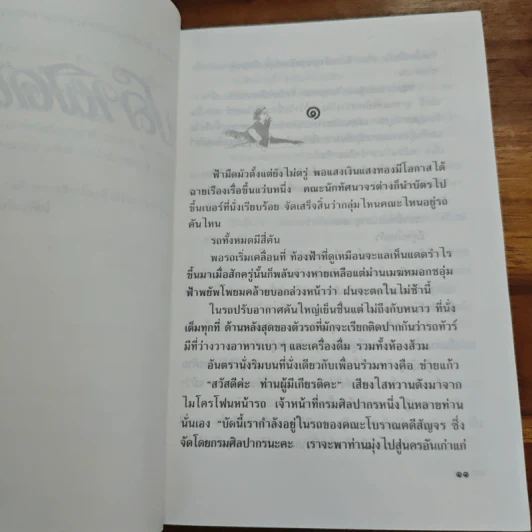 ๑
ฟ้ามืดมัวตั้งแต่ยังไม่ตรู่ พอแสงเงินแสงทองมีโอกาสได้
ฉายเรืองเรื่อขึ้นแว่บหนึ่ง คณะนักทัศนาจรต่างก็นำบัตรไป
ขึ้นเบอร์ที่นั่งเรียบร้อย จัดเสร็จสิ้นว่ากลุ่มไหนคณะไหนอยู่รถ
คันไหน
รถทั้งหมดมีสี่คัน
พอรถเริ่มเคลื่อนที่ ท้องฟ้าที่ดูเหมือนจะแลเห็นแดดรำไร
ขึ้นมาเมื่อสักครู่นั้นก็พลันจางหายเหลือแต่ม่านเมฆหมอกชอุ่ม
ฟ้าพยับโพยมคล้ายบอกล่วงหน้าว่า ฝนจะตกในไม่ช้านี้
ในรถปรับอากาศคันใหญ่เย็นชื่นแต่ไม่ถึงกับหนาว ที่นั่ง
เต็มทุกที่ ด้านหลังสุดของตัวรถที่มักจะเรียกติดปากกันว่ารถทัวร์
มีที่ว่างวางอาหารเบาๆ และเครื่องดื่ม รวมทั้งห้องส้วม
อันตรานั่งริมบนที่นั่งเดียวกับเพื่อนร่วมทางคือ ช่ายแก้ว
"สวัสดีค่ะ ท่านผู้มีเกียรติคะ" เสียงใสหวานดังมาจาก
ไมโครโฟนหน้ารถ เจ้าหน้าที่กรมศิลปากรหนึ่งในหลายท่าน
นั่นเอง "บัดนี้เรากำลังอยู่ในรถของคณะโบราณคดีสัญจร ซึ่ง
จัดโดยกรมศิลปากรนะคะ เราจะพาท่านมุ่งไปสู่นครอันเก่าแก่
๑๑